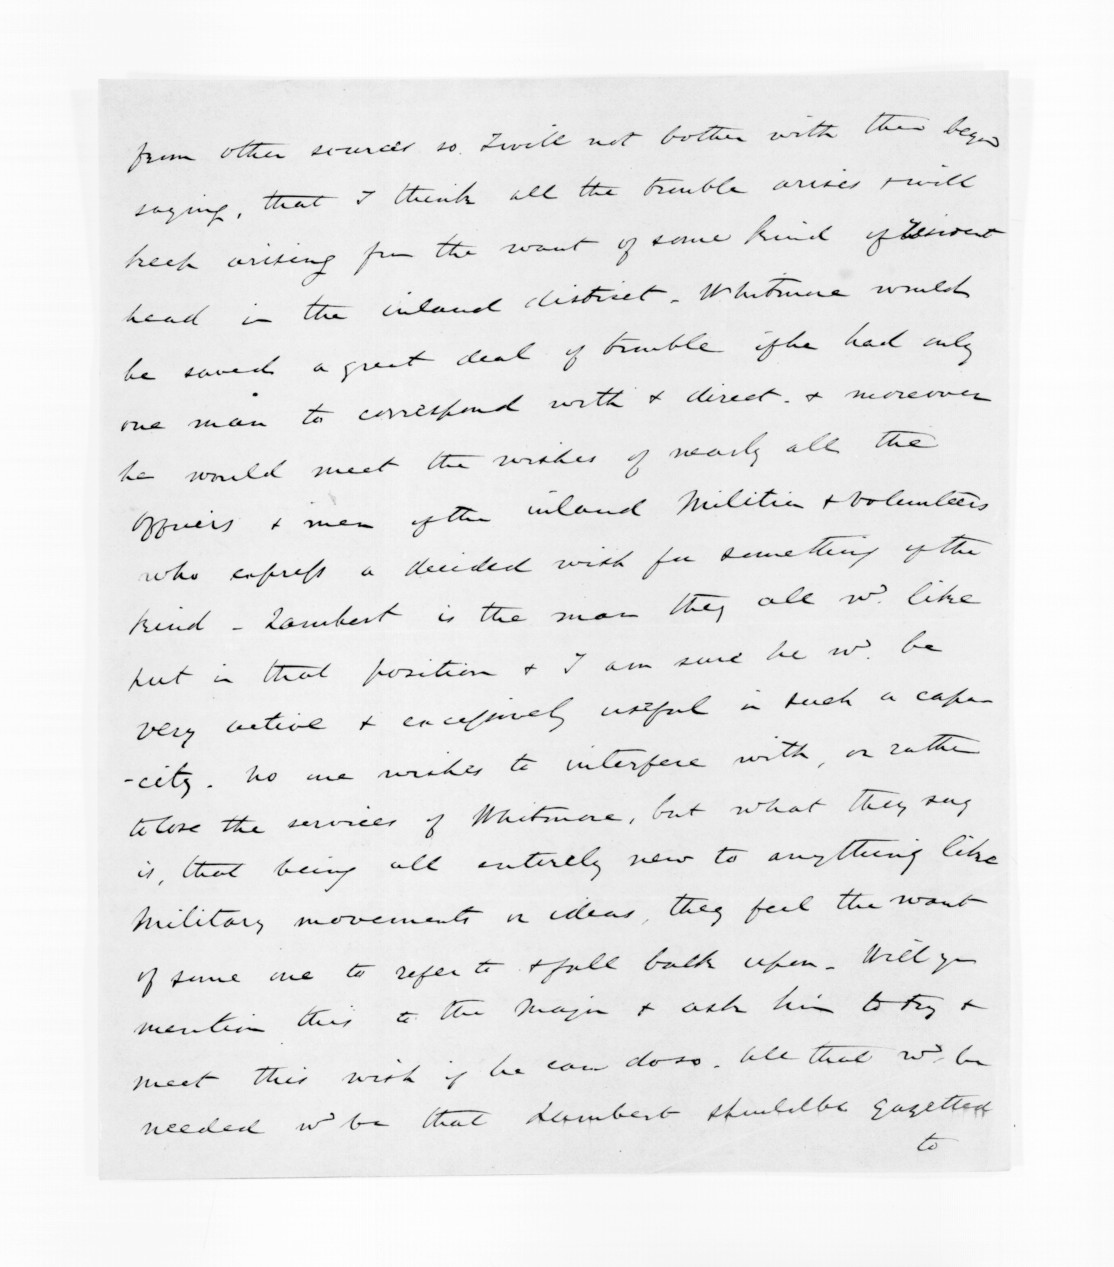 from other sources so I will not bother with them beyond
saying, that I think all the trouble arises & will
keep arising from the want of some kind of
head in the inland district - Whitmore would
be saved a great deal of trouble if he had only
one man to correspond with & direct. & moreover
he would meet the wishes of nearly all the
officers & men of the inland Militia & Volunteers
who express a decided wish for something of the
kind - Lambert is the man they all wd. like
put in that position & I am sure he wd. be
very active & excessively useful in such a capa-
-city. No one wishes to interfere with, or rather
to lose the services of Whitmore, but what they say
is, that being all entirely new to anything like
Military movements or ideas, they feel the want
of some one to refer to & fall back upon - Will you
mention this to the Major & ask him to try &
meet this wish if he can do so. All that wd. be
needed wd be that Lambert should be gazetted
to